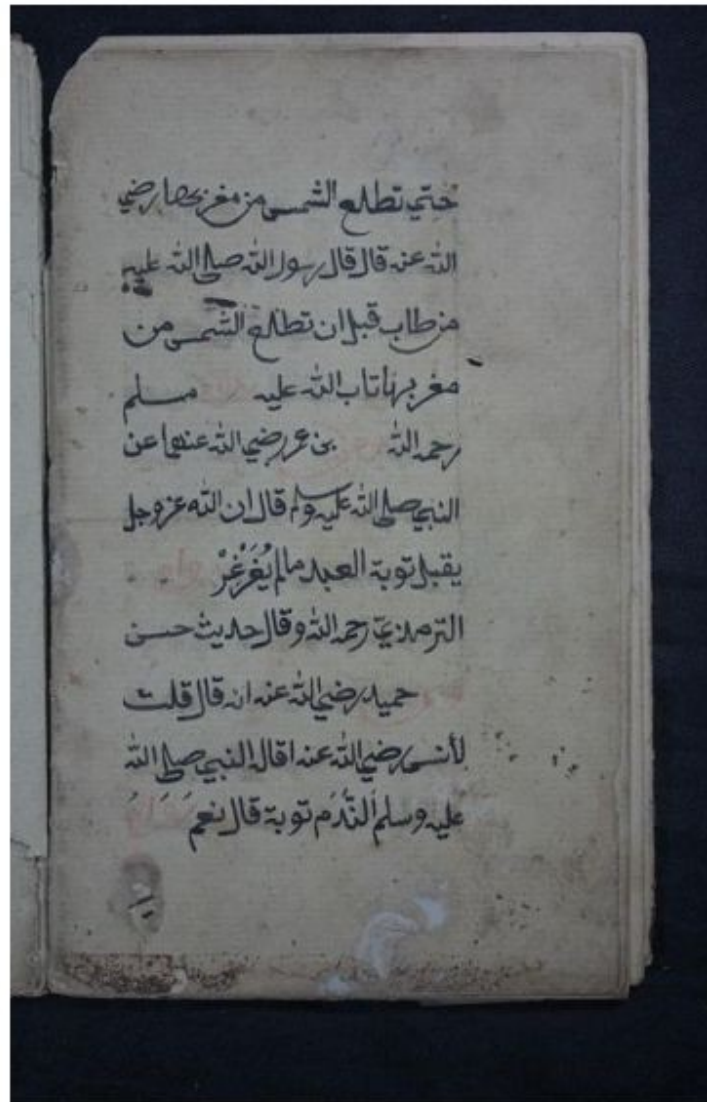 حتي تطلع الشمس من مغربها رضي
الله عنه قال قال رسول الله صلي الله عليه
من طاب قبل ان تطلع الشمس من
مغربها تاب الله عليه مسلم
رحمه الله بن عمر رضي الله عنهما عن
النبي صلي الله عليه وسلم قال ان الله عز وجل
يقبل توبة العبد مالم يُغَرْغِرْ
الترمذي رحمه الله وقال حديث حسن
حميد رضي الله عنه انه قال قلت
لأنس رضي الله عنه اقال النبي صلي الله
عليه وسلم النَّدَم توبة قال نعم